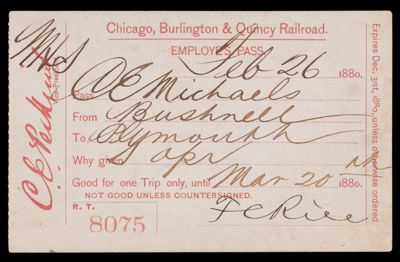 Chicago, Burlington & Quincy Railroad.
EMPLOYES PASS.
Feb 26 1880.
Pass
Michaels
From Bushnell
To Plymouth
Why given opr
Good for one Trip only, until Mar 20 1880.
NOT GOOD UNLESS COUNTERSIGNED.
R. T.
8075
F C Rice
C. E. Perkins
Expires Dec. 31st, 1880, unless otherwise ordered.